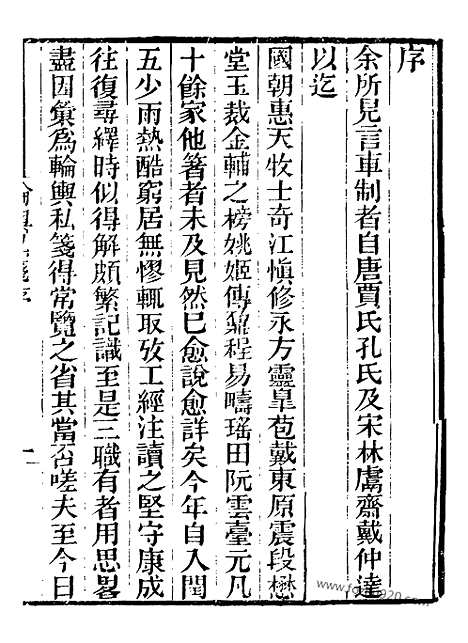 序
余所見言車制者自唐賈氏孔氏及宋林鬳齋戴仲達
以迄
國朝惠天牧士奇江慎修永方靈皐苞戴東原震段懋
堂玉裁金輔之榜姚姬傳鼐程易疇瑤田阮雲臺元凡
十餘家他箸者未及見然已愈說愈詳矣今年自入閏
五少雨熱酷窮居無憀輒取攷工經注讀之堅守康成
往復尋繹時似得解頗繁記識至是三職有者用思畧
盡因彙爲輪輿私箋得常覽之省其當否嗟夫至今日
輪輿私箋序
一